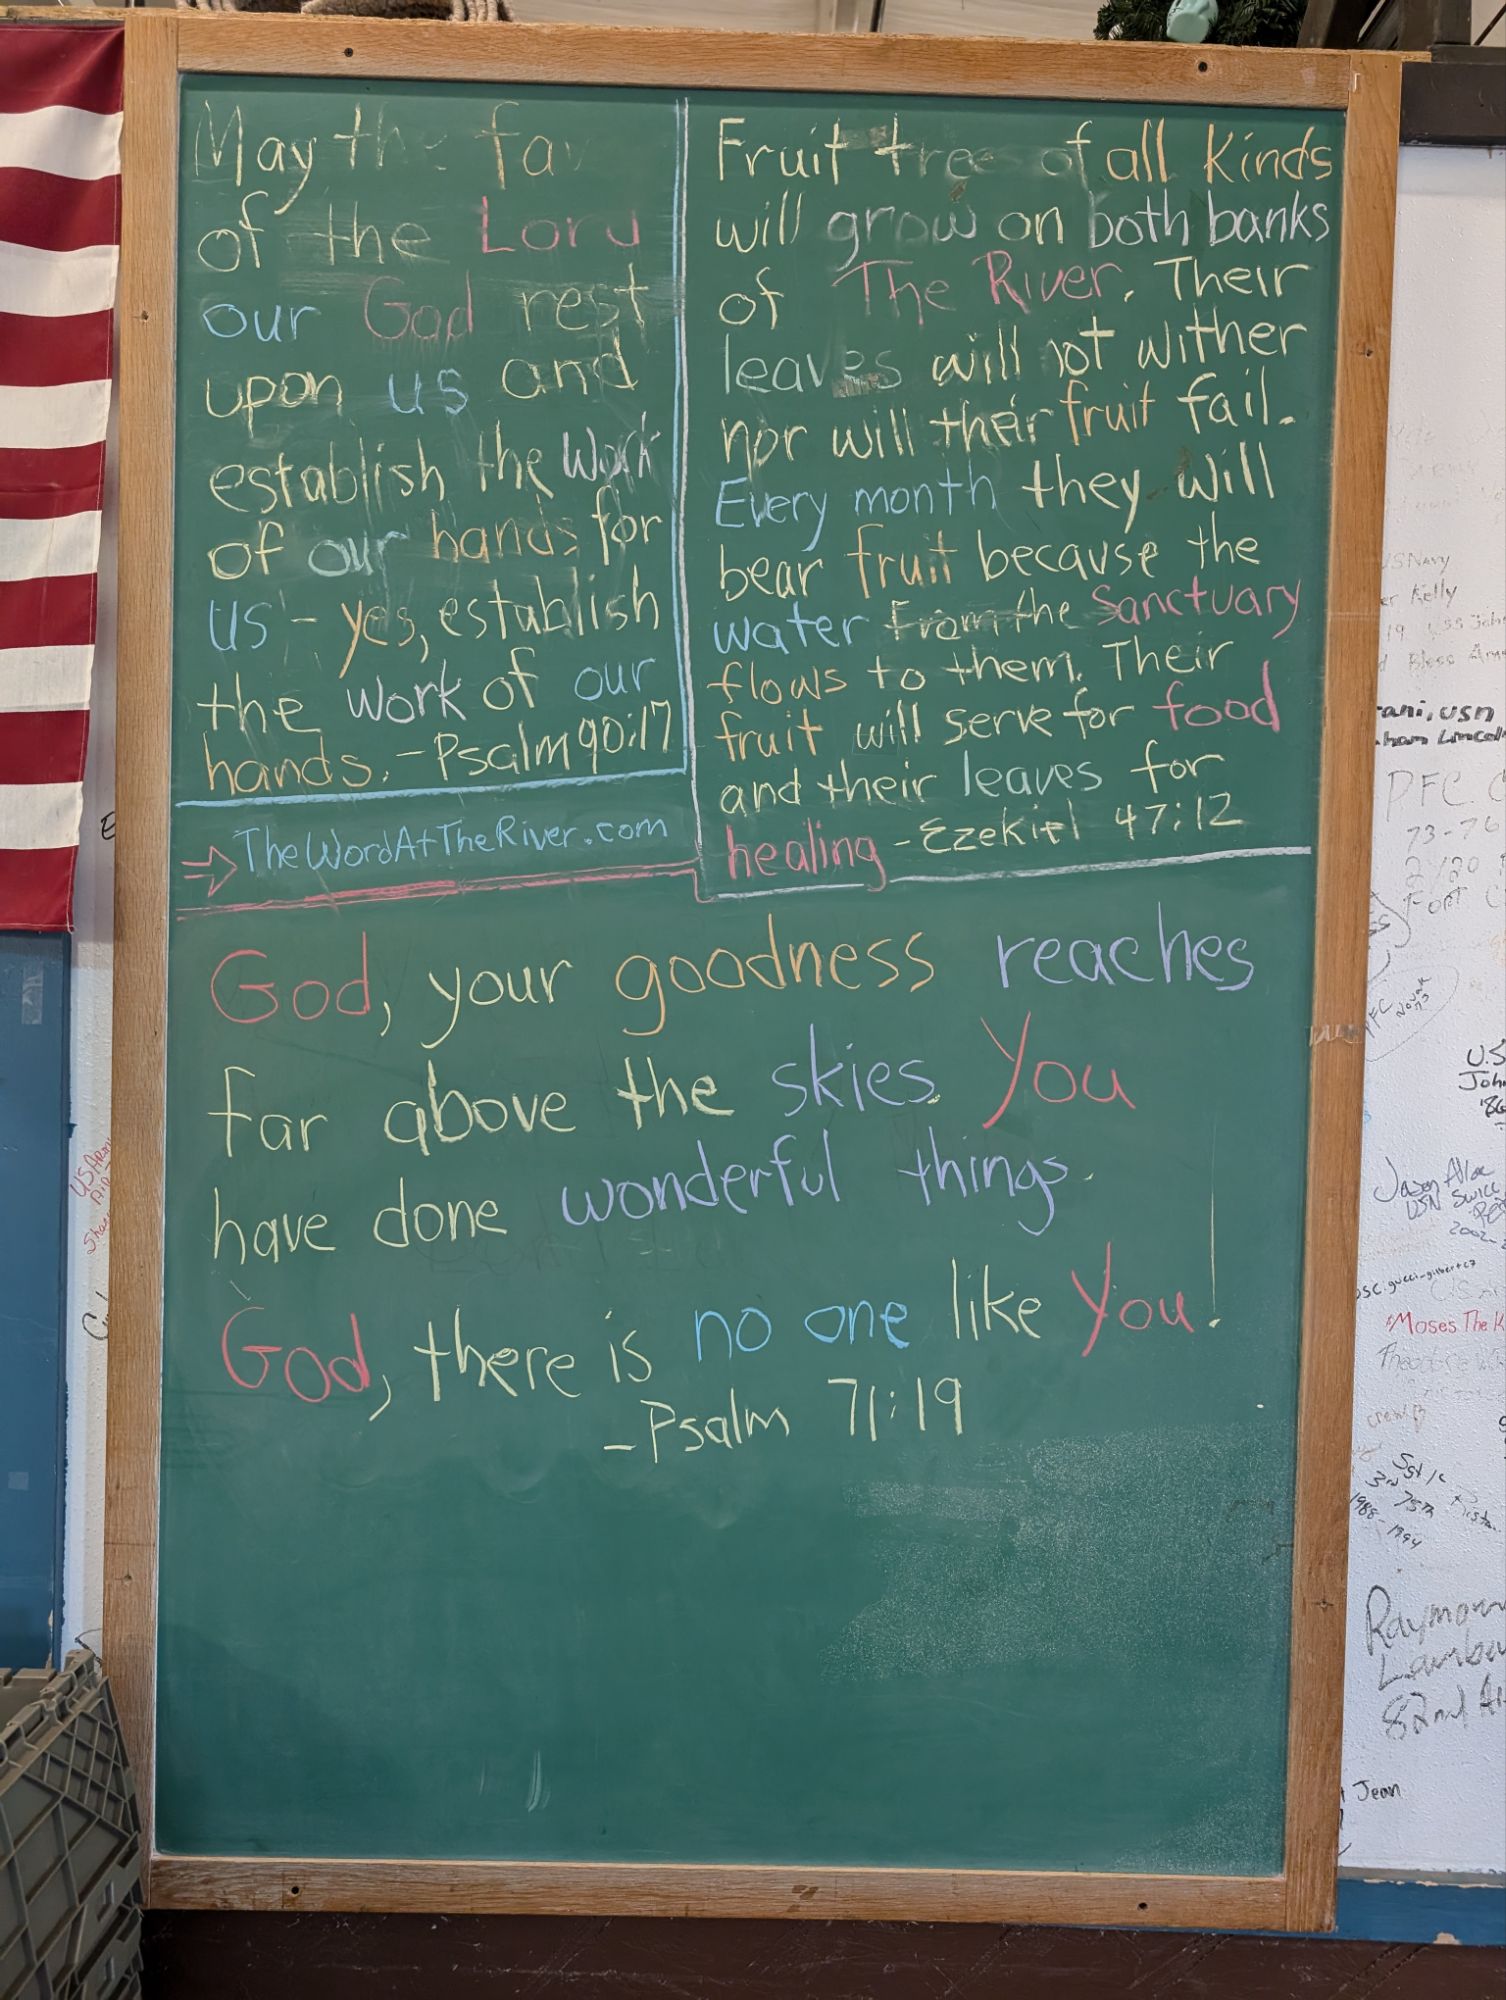 May the fav
of the Lord
our God rest
upon us and
establish the work
of our hands for
us - yes, establish
the work of our
hands. - Psalm 90:17
TheWordAtTheRiver.com
Fruit trees of all kinds
will grow on both banks
of The River. Their
leaves will not wither
nor will their fruit fail.
Every month they will
bear fruit because the
water from the Sanctuary
flows to them. Their
fruit will serve for food
and their leaves for
healing - Ezekiel 47:12
God, your goodness reaches
far above the skies. You
have done wonderful things.
God, there is no one like You!
- Psalm 71:19
US Navy
er Kelly
19 USS John
d Bless Am
ani, USN
ham Lincol
PFC. C
73-76
2/20
Fort C
PFC
U.S
John
'86
US Army
Jason Alla
USN
2002-
Moses The K
Sgt
3rd 75th
1988-1994
Raymon
82nd Ai
Jean